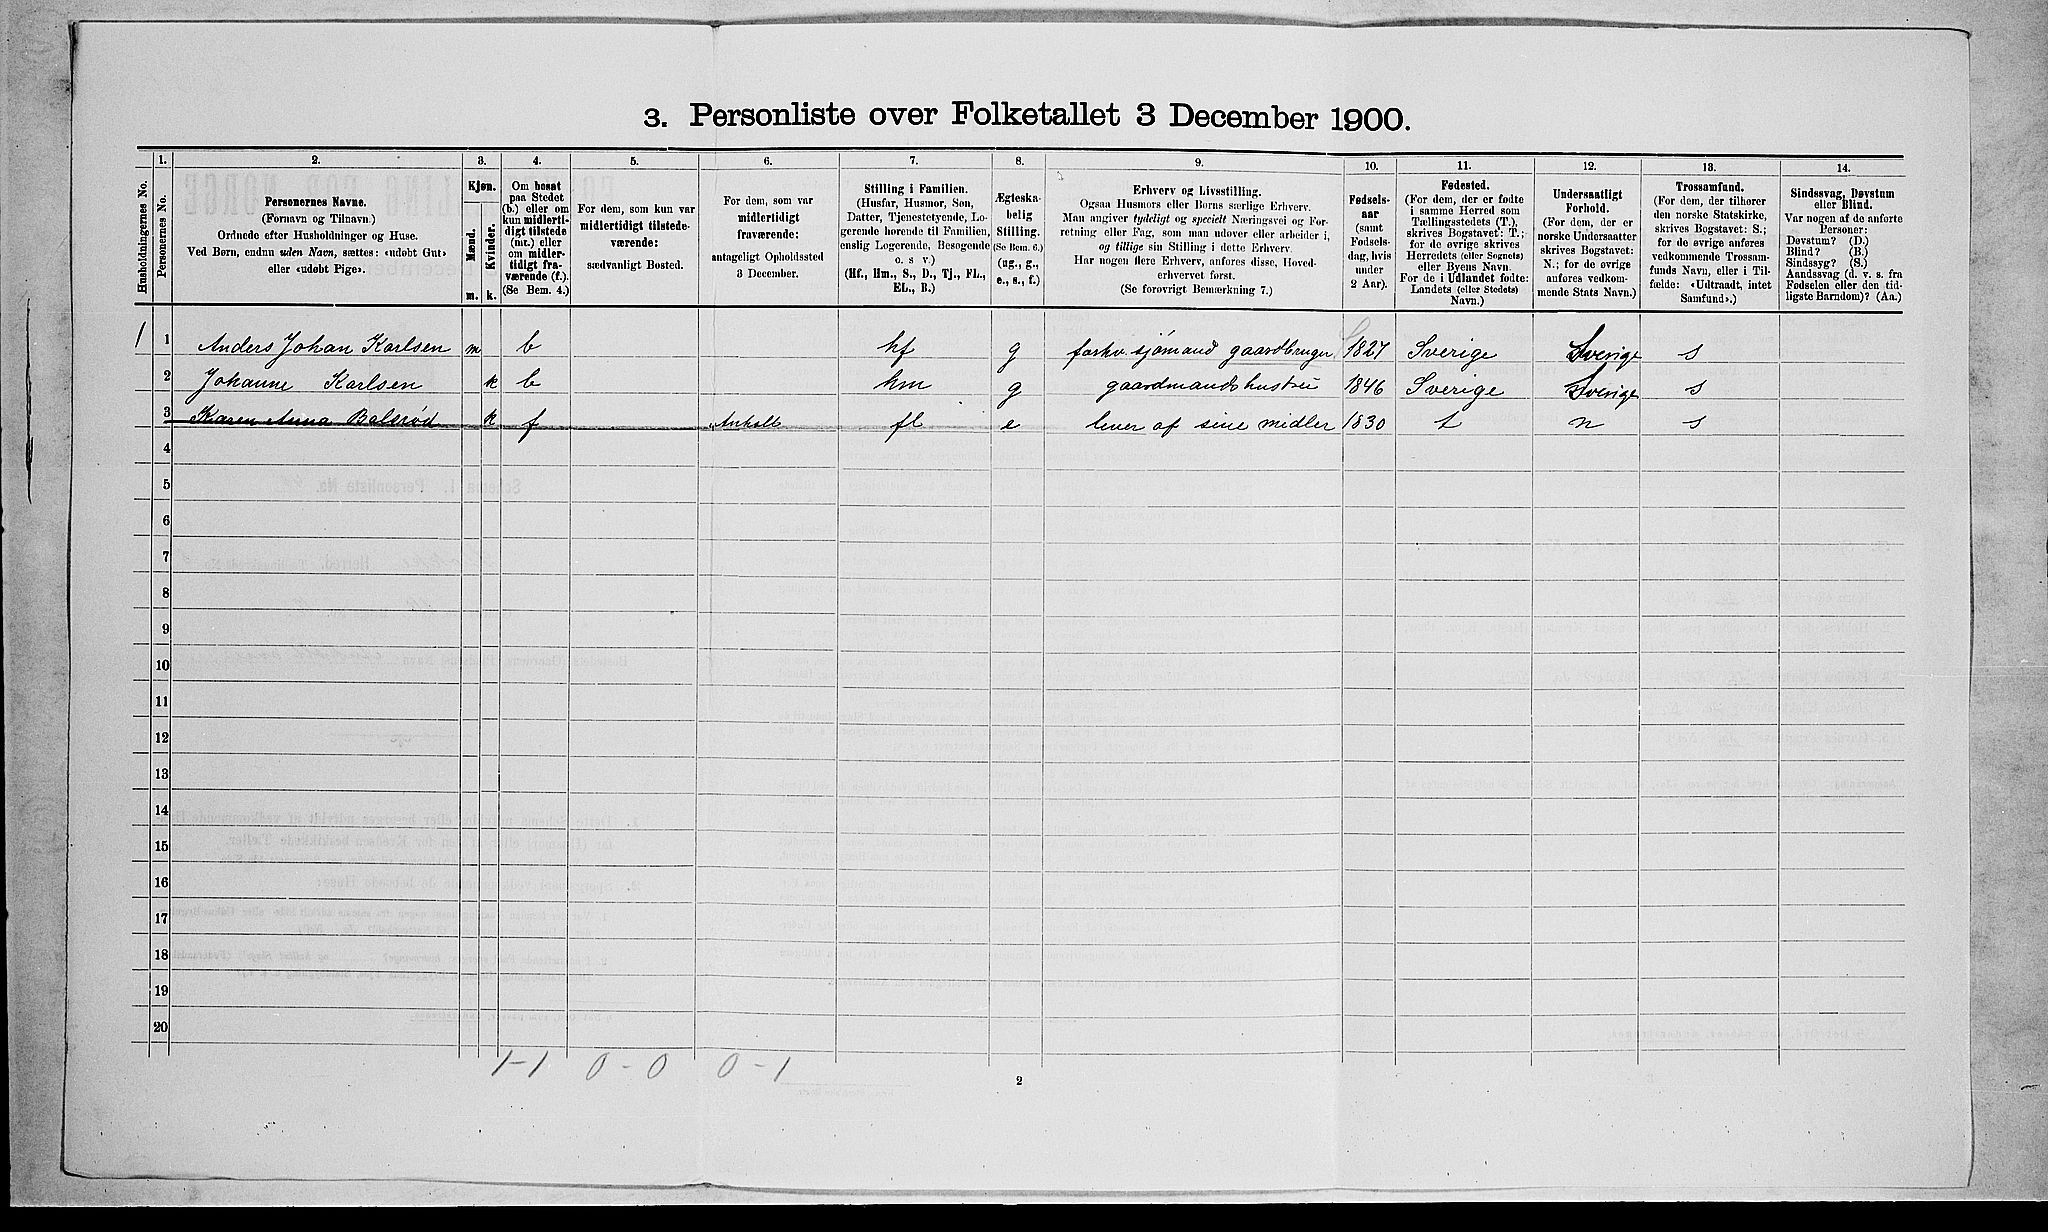 3. Personliste over Folketallet 3 December 1900.
Husholdningernes No.
1.
Personernes No.
2.
Personernes Navne.
(Fornavn og Tilnavn.)
Ordnede efter Husholdninger og Huse.
Ved Børn, endnu uden Navn, sættes: «udøbt Gut»
eller «udøbt Pige».
3.
Kjøn.
Mænd.
Kvinder.
m.
k.
4.
Om bosat
paa Stedet
(b.) eller om
kun midlerti-
digt tilstede
(mt.) eller
om midler-
tidigt fra-
værende (f.).
(Se Bem. 4.)
5.
For dem, som kun var
midlertidigt tilstede-
værende:
sædvanligt Bosted.
6.
For dem, som var
midlertidigt
fraværende:
antageligt Opholdssted
3 December.
7.
Stilling i Familien.
(Husfar, Husmor, Søn,
Datter, Tjenestetyende, Lo-
gerende hørende til Familien,
enslig Logerende, Besøgende
o. s v.)
(Hf., Hm., S., D., Tj., FL.,
EL., B.)
8.
Ægteska-
belig
Stilling.
(Se Bem. 6.)
(ug., g.,
e., s., f.)
9.
Erhverv og Livsstilling.
Ogsaa Husmors eller Børns særlige Erhverv.
Man angiver tydeligt og specielt Næringsvei og For-
retning eller Fag, som man udøver eller arbeider i,
og tillige sin Stilling i dette Erhverv.
Har nogen flere Erhverv, anføres disse, Hoved-
erhvervet først.
(Se forøvrigt Bemærkning 7.)
10.
Fødsels-
aar
(samt
Fødsels-
dag, hvis
under
2 Aar).
11.
Fødested.
(For dem, der er fødte
i samme Herred som
Tællingsstedets (T.),
skrives Bogstavet: T.;
for de øvrige skrives
Herredets (eller Sognets)
eller Byens Navn.
For de i Udlandet fødte:
Landets (eller Stedets)
Navn.)
12.
Undersaatligt
Forhold.
(For dem, der er
norske Undersaatter
skrives Bogstavet:
N.; for de øvrige
anføres vedkom-
mende Stats Navn.)
13.
Trossamfund.
(For dem, der tilhører
den norske Statskirke,
skrives Bogstavet: S.;
for de øvrige anføres
vedkommende Trossam-
funds Navn, eller i Til-
fælde: «Udtraadt, intet
Samfund».)
14.
Sindssvag, Døvstum
eller Blind.
Var nogen af de anførte
Personer:
Døvstum? (D.)
Blind? (B.)
Sindssyg? (S.)
Aandssvag (d. v. s. fra
Fødselen eller den tid-
ligste Barndom)? (Aa.)
1 1 Anders Johan Karlsen m b hf g forhv. sjømand gaardbruger 1827 Sverige Sverige s
2 Johanne Karlsen k b hm g gaardmandshustru 1846 Sverige Sverige s
3 Karen Anna Balsrød k f Anholt fl e lever af sine midler 1830 t n s
4
5
6
7
8
9
10
11
12
13
14
15
16
17
18
19
20
1-1 0-0 0-1
2